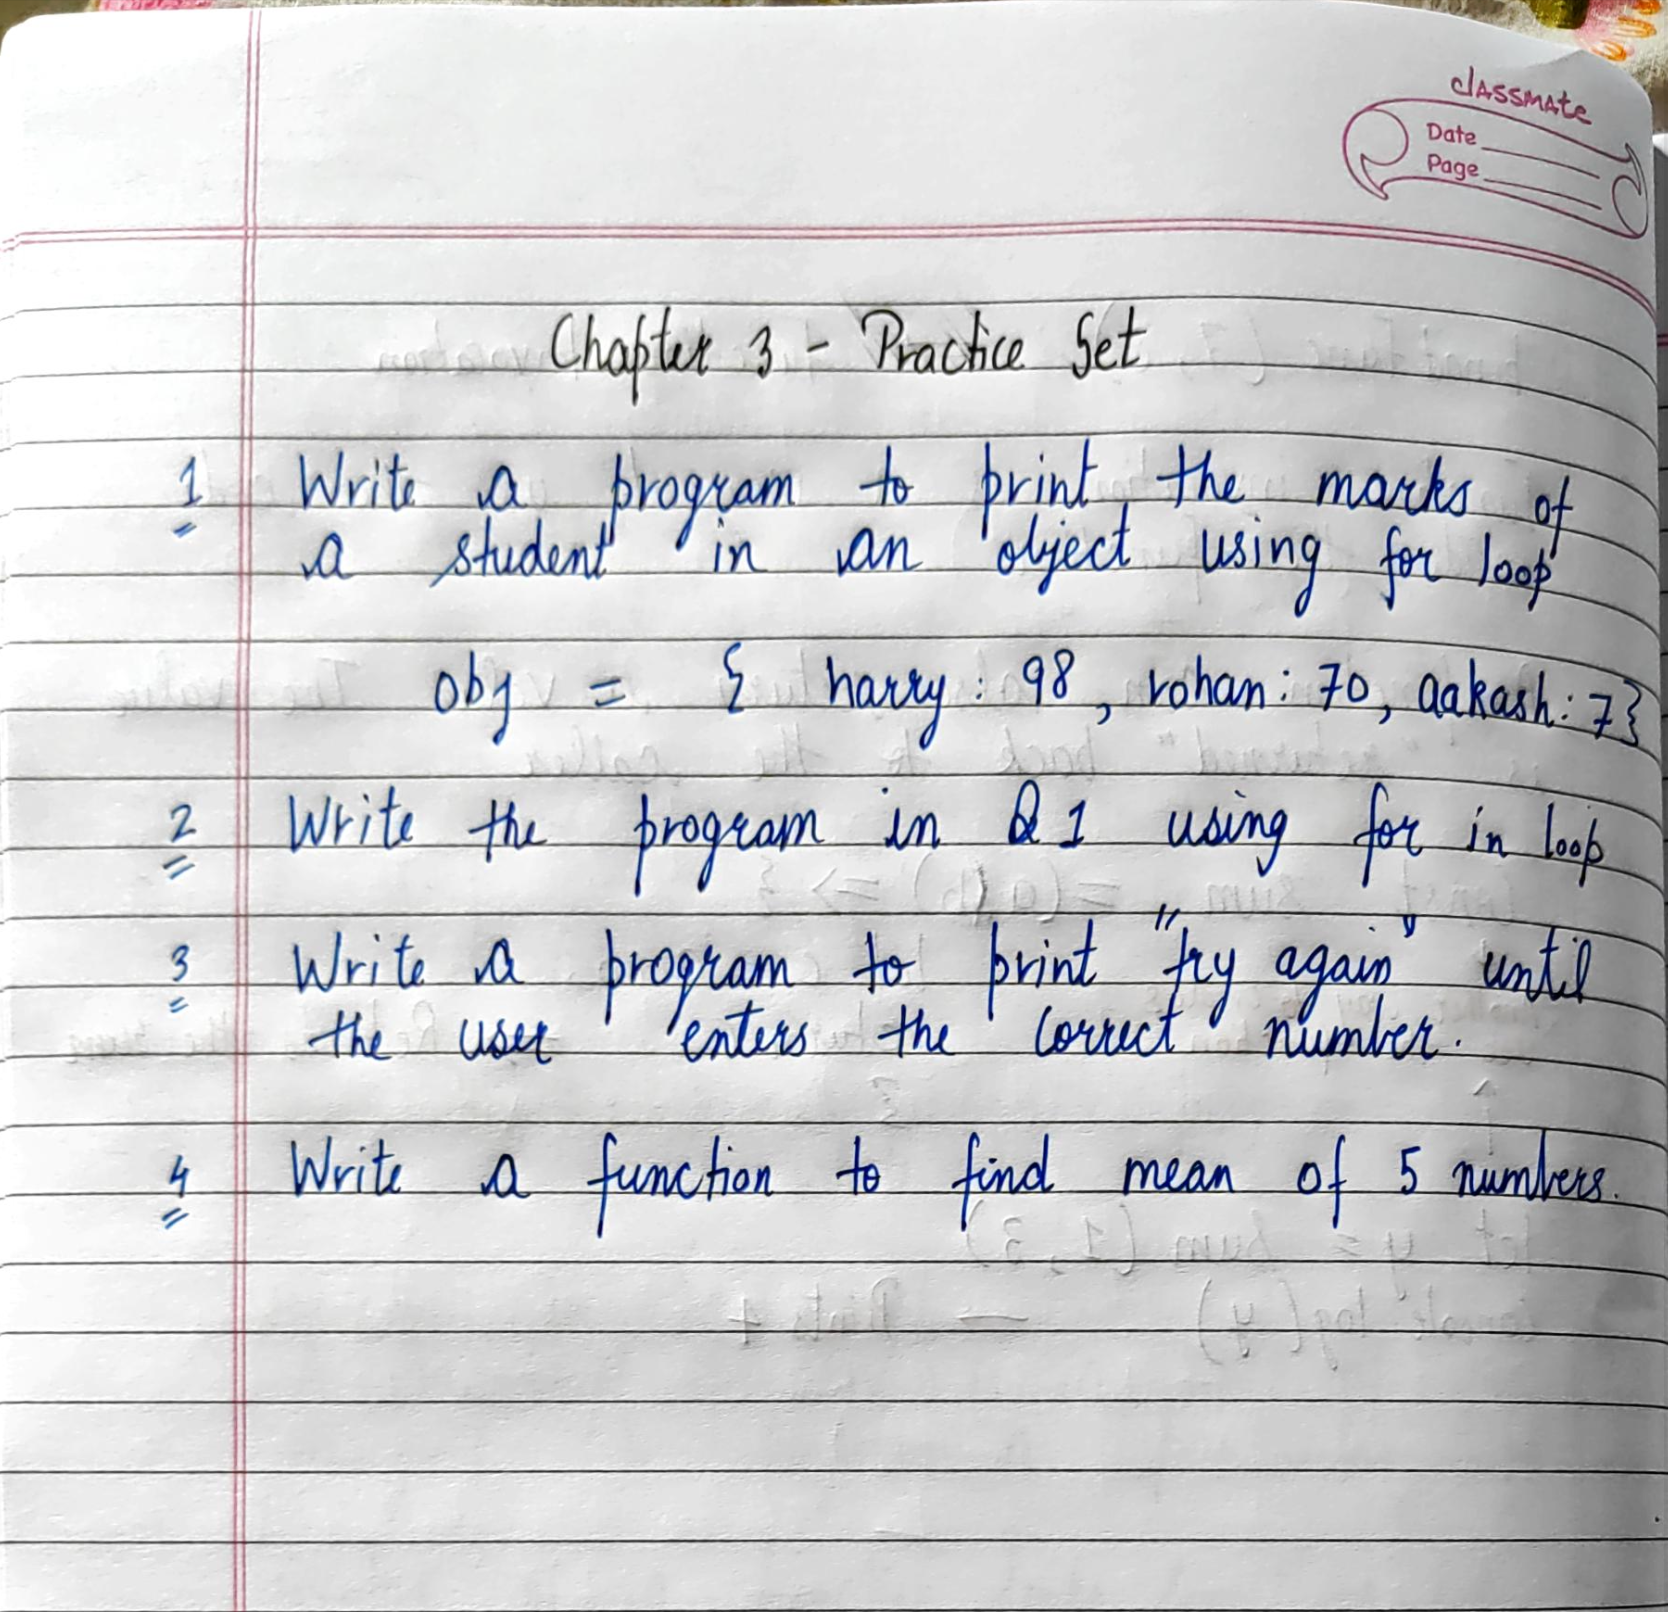 classmate
Date
Page
Chapter 3 - Practice Set
1 Write a program to print the marks of
a student in an object using for loop
obj = { harry : 98 , rohan : 70, aakash : 7}
2 Write the program in Q1 using for in loop
3 Write a program to print "try again" until
the user enters the correct number.
4 Write a function to find mean of 5 numbers.